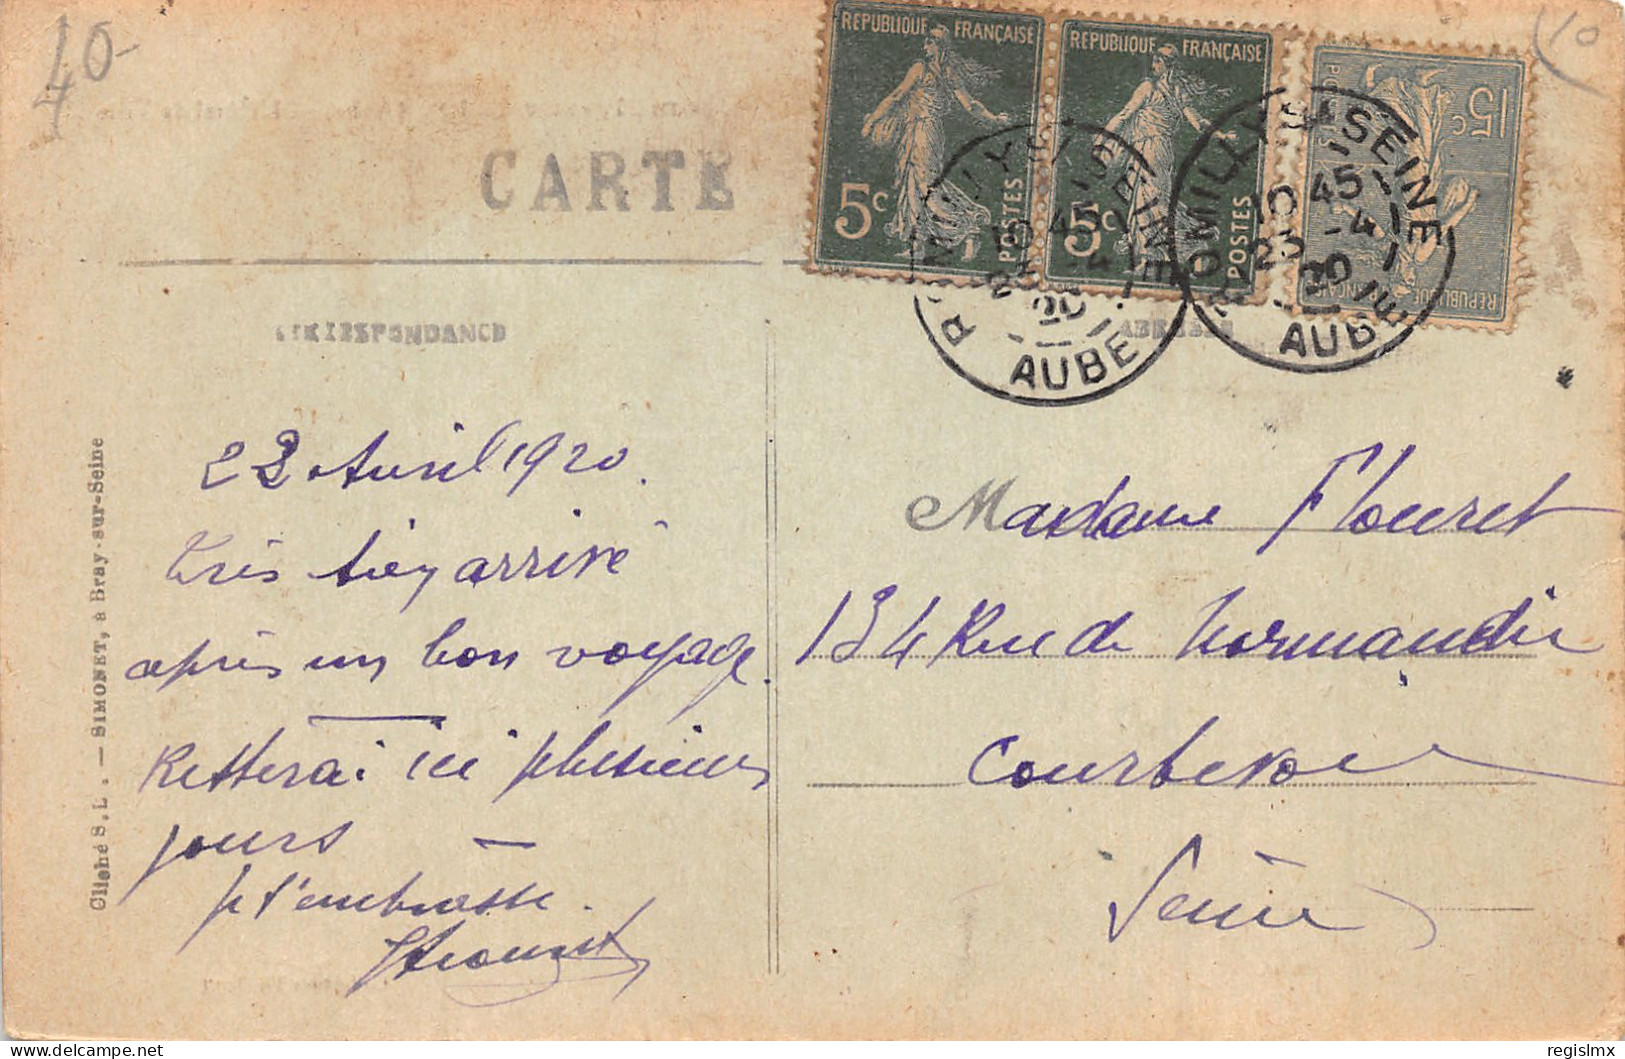 10-
10
RÉPUBLIQUE FRANÇAISE
5c
POSTES
RÉPUBLIQUE FRANÇAISE
5c
POSTES
15c
RÉPUBLIQUE FRANÇAISE
ROMILLY S/ SEINE
10 45
23 -4
20
AUBE
ROMILLY S/ SEINE
10 45
23 -4
20
AUBE
CARTE
CORRESPONDANCE
ADRESSE
22 Avril 1920.
très bien arrivé
après un bon voyage.
Resterai ici plusieurs
jours
je t'embrasse.
Madame Flouret
134 Rue de Normandie
Courbevoie
Seine
Cliché S.L. — SIMONET, à Bray-sur-Seine
regislmx